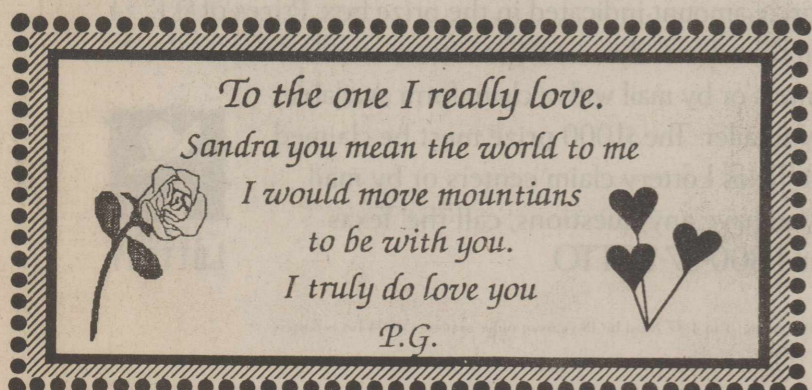 To the one I really love.
Sandra you mean the world to me
I would move mountians
to be with you.
I truly do love you
P.G.